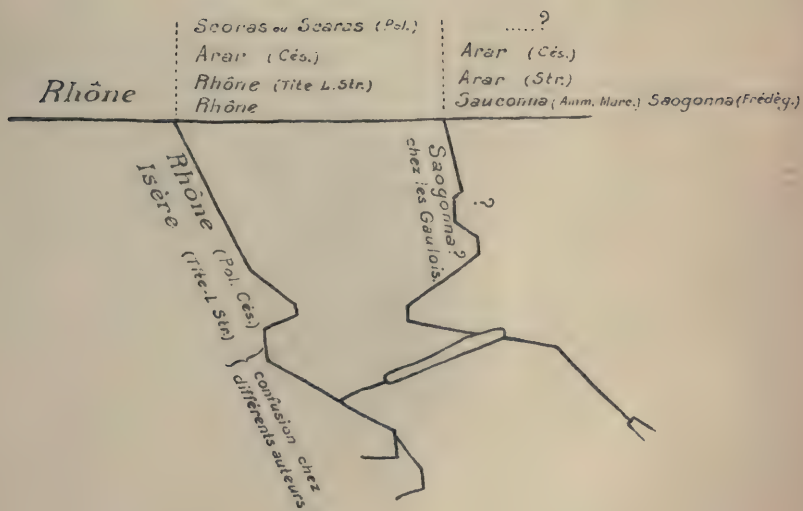 Scoras ou Scaras (Pol.)
Arar (Cés.)
Rhône (Tite L. Str.)
Rhône
Rhône
.....?
Arar (Cés.)
Arar (Str.)
Sauconna (Amm. Marc.) Saogonna (Frédèg.)
Rhône (Pol. Cés.)
Isère (Tite-L Str.)
confusion chez
différents auteurs
Saogonna?
chez les Gaulois.
?